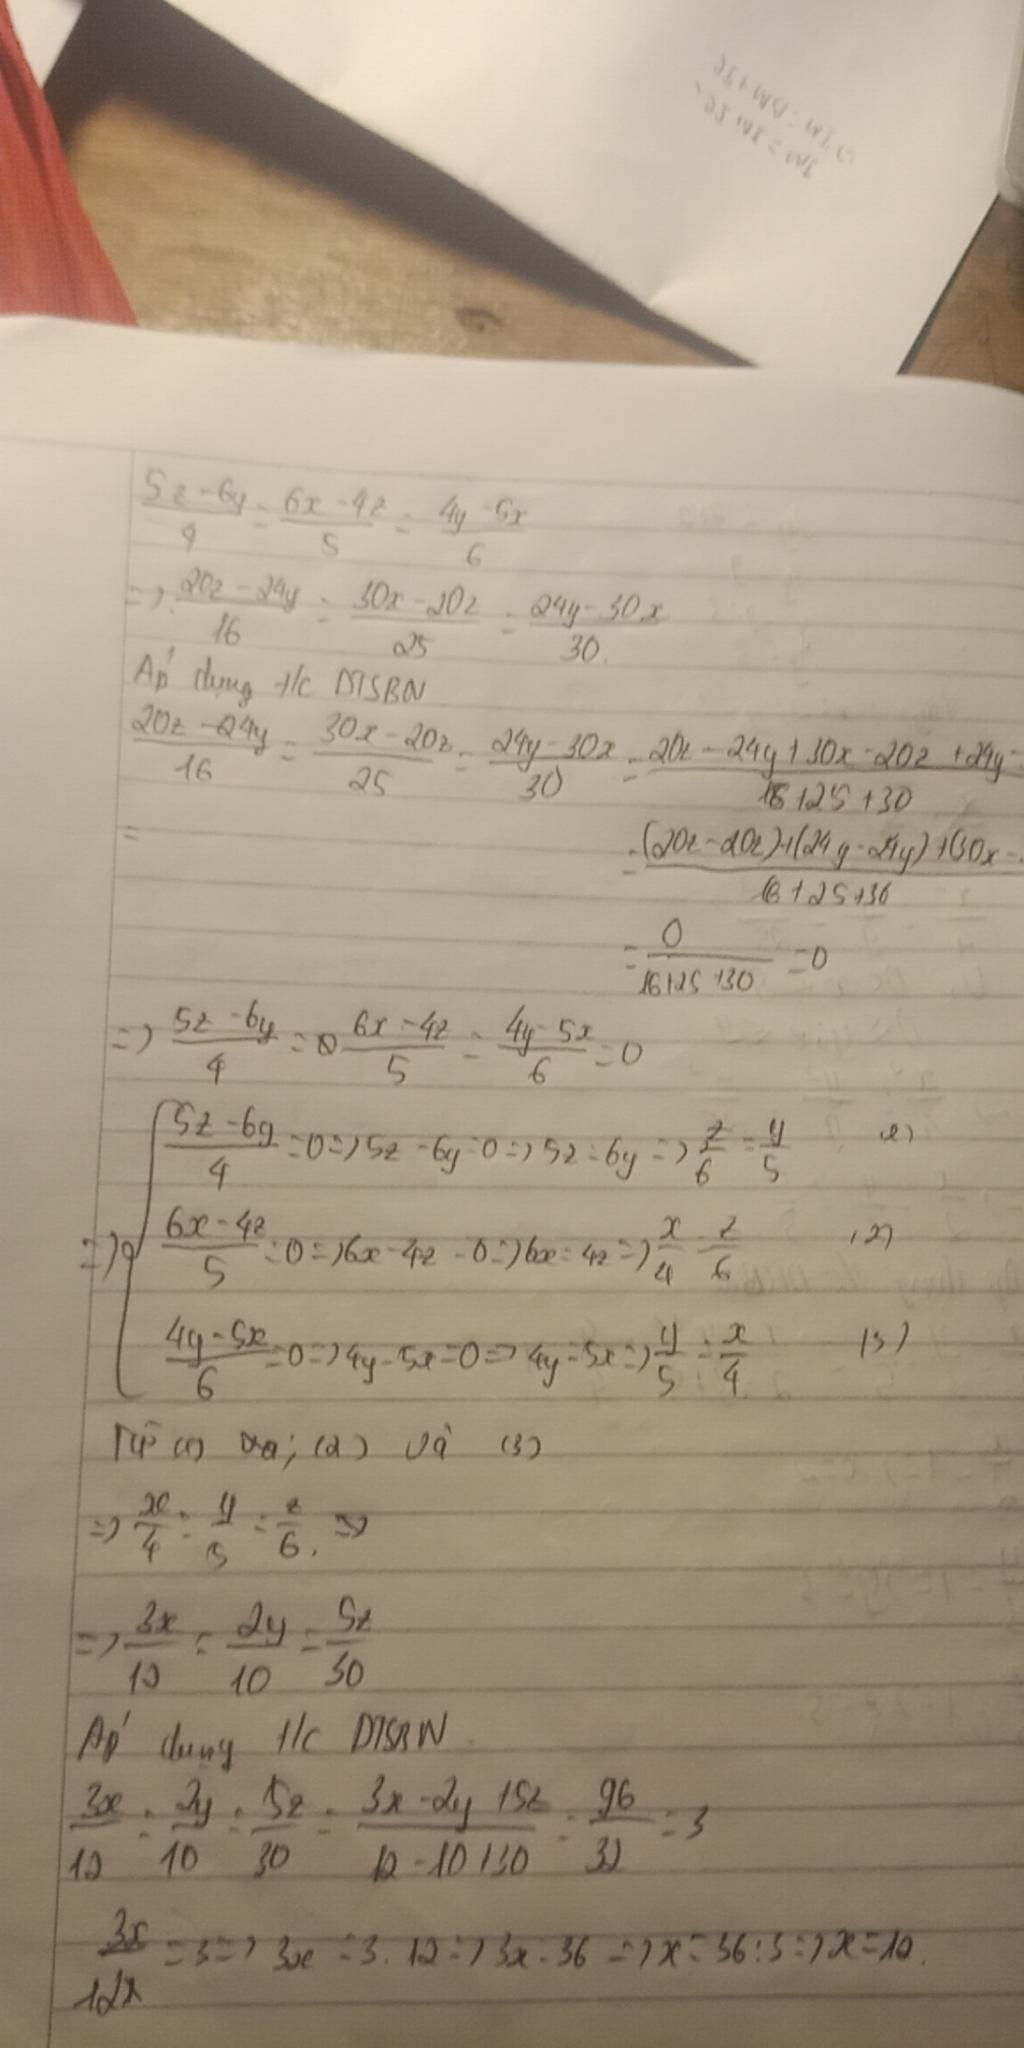 5z-6y/4 = 6x-4z/5 = 4y-5x/6
=> 20z-24y/16 = 30x-20z/25 = 24y-30x/30.
Áp dụng t/c DTSBN
20z-24y/16 = 30x-20z/25 = 24y-30x/30 = 20z-24y+30x-20z+24y-/16+25+30
= = (20z-20z)+(24y-24y)+(30x-/16+25+36
= 0/16+25+30 = 0
=> 5z-6y/4 = 0 6x-4z/5 = 4y-5x/6 = 0
5z-6y/4 = 0 => 5z-6y=0 => 5z=6y => z/6 = y/5 (1)
=> 6x-4z/5 = 0 => 6x-4z=0 => 6x=4z => x/4 = z/6 (2)
4y-5x/6 = 0 => 4y-5x=0 => 4y=5x => y/5 = x/4 (3)
Từ (1) ; (2) và (3)
=> x/4 = y/5 = z/6. =>
=> 3x/12 = 2y/10 = 5z/30
Áp dụng t/c DTSBN
3x/12 = 2y/10 = 5z/30 = 3x-2y+5z/12-10+30 = 96/32 = 3
3x/12x = 3 => 3x = 3.12 => 3x=36 => x=36:3 => x=12.